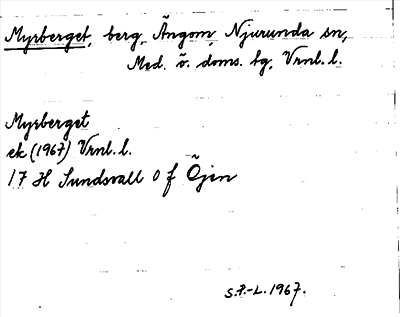 Myrberget, berg, Ängom, Njurunda sn,
Med. ö. doms. tg, Vrnl. l.
Myrberget
ek (1967) Vrnl. l.
17 H Sundsvall 0 f Öjen
S.P.-L. 1967.